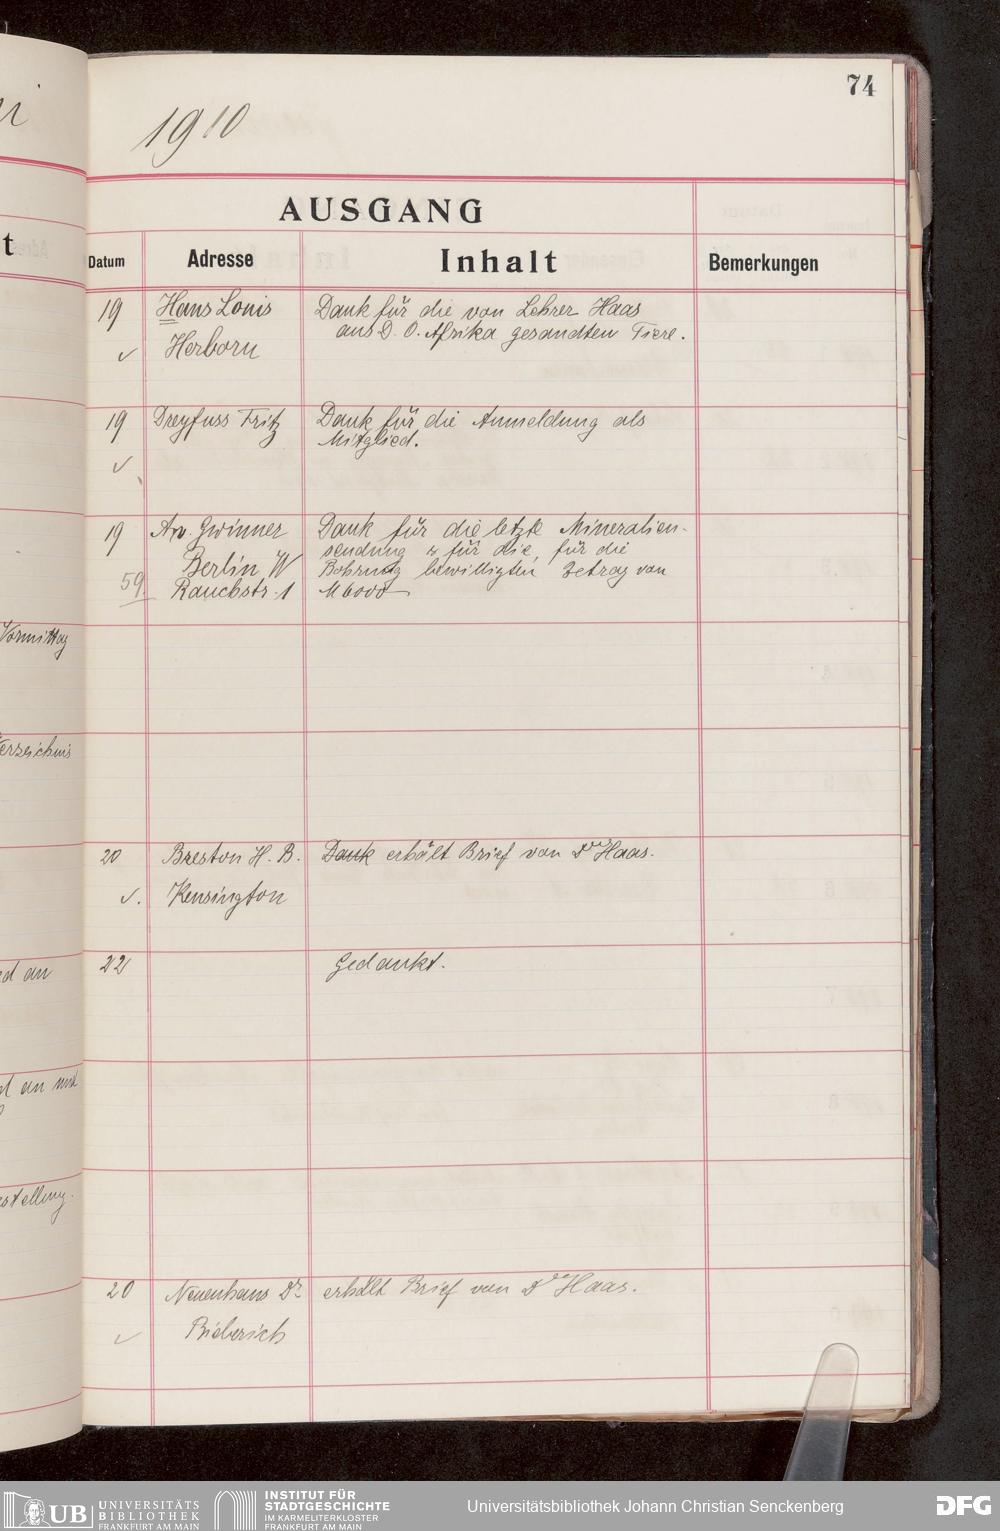 74
1910
AUSGANG
Datum Adresse Inhalt Bemerkungen
19 Haas Louis Dank für die von Lehrer Haas
aus D. O. Afrika gesandten Tiere.
✓ Herborn
19 Dreyfuss Fritz Dank für die Anmeldung als
Mitglied.
✓
19 A v. Gwinner Dank für die letzte Mineralien-
sendung & für die, für die
Berlin W Bohrung bewilligten Betrag von
59. Rauchstr. 1 M 6000
20 Breston H. B. Dank erhält Brief von Dr Haas.
✓. Kensington
22 Gedankt.
20 Neuenhaus Dr. erhält Brief von Dr Haas.
✓ Bieberich
t
Vormittag
Verzeichnis
ed an
d an und
estellung.
UB UNIVERSITÄTS
BIBLIOTHEK
FRANKFURT AM MAIN
INSTITUT FÜR
STADTGESCHICHTE
IM KARMELITERKLOSTER
FRANKFURT AM MAIN
Universitätsbibliothek Johann Christian Senckenberg
DFG